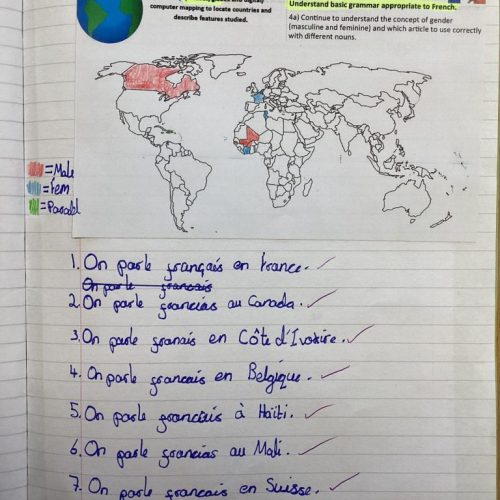 computer mapping to locate countries and
describe features studied.
Understand basic grammar appropriate to French.
4a) Continue to understand the concept of gender
(masculine and feminine) and which article to use correctly
with different nouns.
= Male
= Fem
1. On parle français en France.
On parle francais
2. On parle francias au Canada.
3. On parle franais en Côte d'Ivoire.
4. On parle francais en Belgique.
5. On parle francais à Haïti.
6. On parle francias au Mali.
7. On parle francais en Suisse.